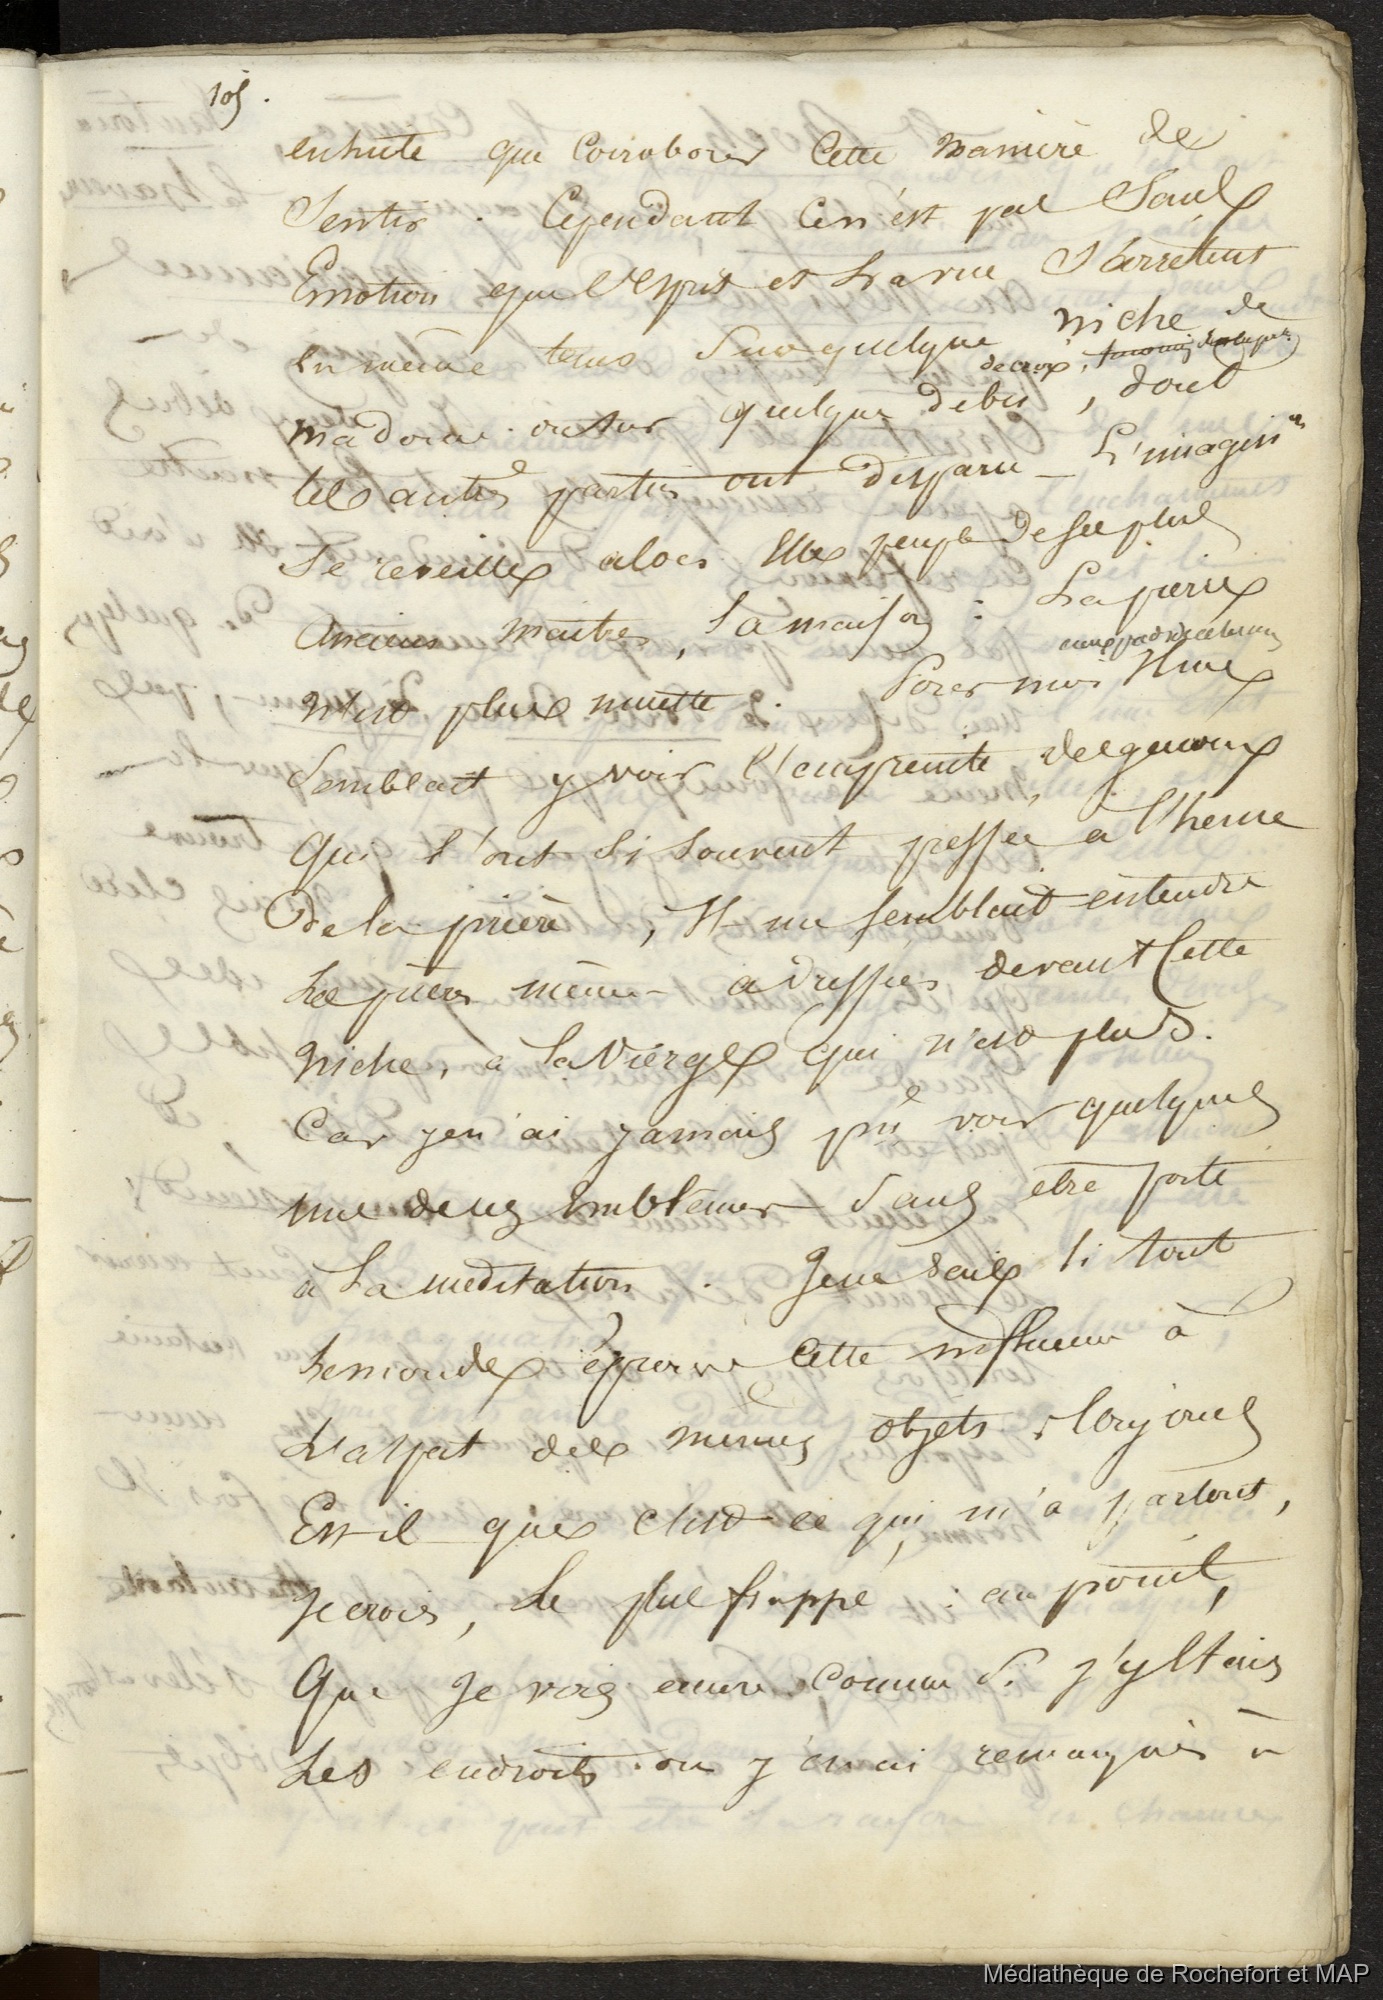 105.
ensuite que corroborer cette manière de
sentir. Cependant ce n'est pas sans
Emotion que l'esprit et la vue s'arrêtent
en même tems sur quelque niche de
de croix,
madone ou sur quelque debri, dont
les autres parties ont disparu _ L'imagin on
se reveille alors. Elle peuple de ses plus
Anciens maitres, la maison : La pierre
n'est plus muette. Il me
semblait y voir l'empreinte, des genoux
qui l'ont si souvent pressée à l'heure
de la prière, Il me semblait entendre
les prières même adressées devant cette
niche, a la Vierge qui n'est plus.
Car je n'ai jamais pu voir quelqu'
un de ces emblèmes sans etre porté
à la meditation. Je ne sais si tout
le monde éprouve cette influence à
l'aspect des mêmes objets, toujours
Est-il que c'est ce qui m'a partout,
Je crois, le plus frappé : au point,
Que je vois encore comme si j'y étais
Les endroits où j'en ai remarqués à
Médiathèque de Rochefort et MAP